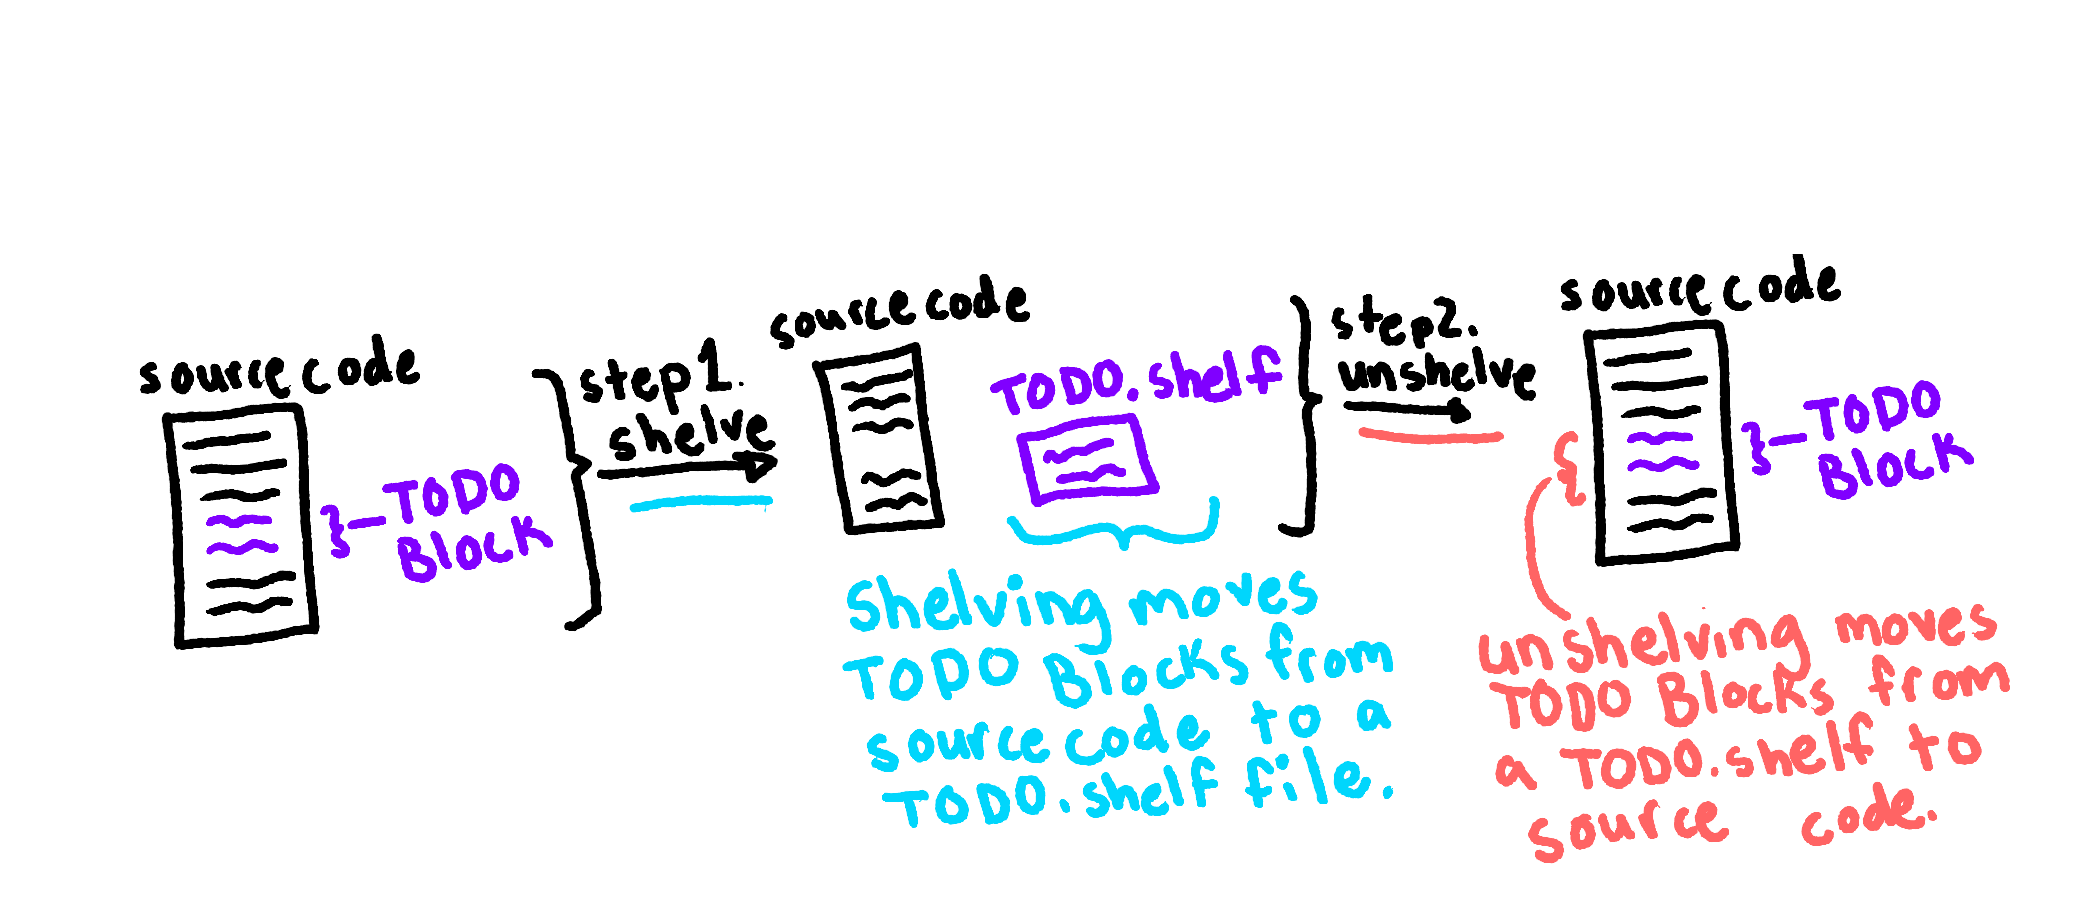 source code
TODO
Block
step 1.
shelve
source code
TODO.shelf
Shelving moves
TODO Blocks from
source code to a
TODO.shelf file.
step 2.
unshelve
source code
TODO
Block
unshelving moves
TODO Blocks from
a TODO.shelf to
source code.